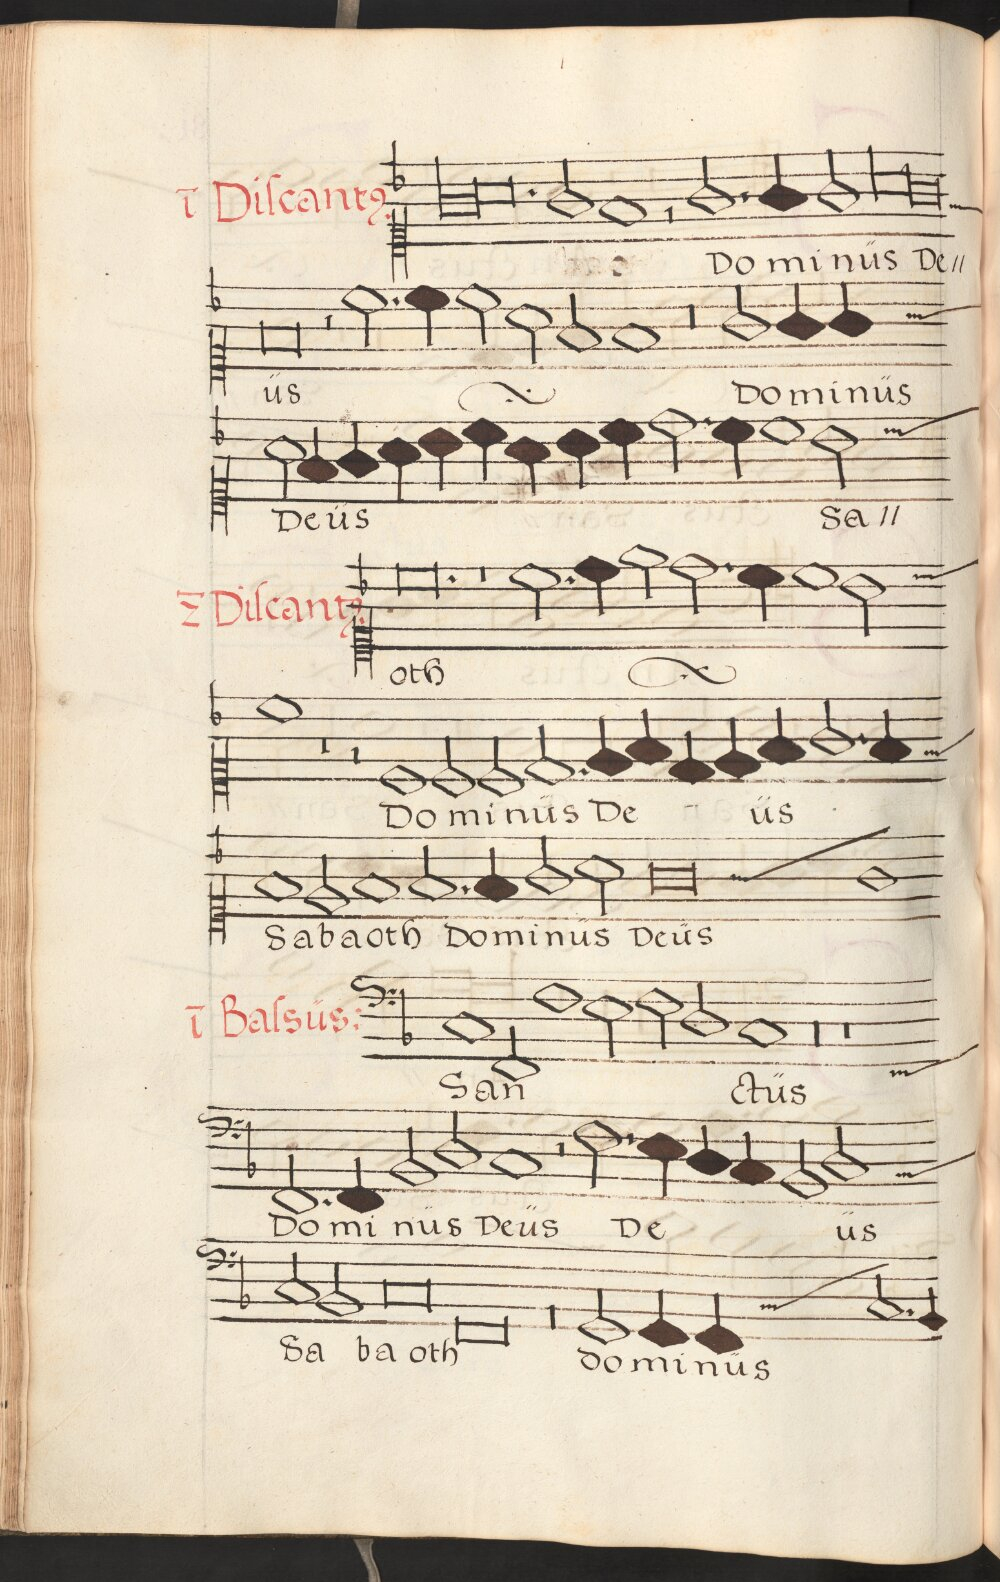 ī Diſcantꝯ.
Do mi nüs De//
üs Dominüs
Deüs Sa//
z̄ Diſcantꝯ.
oth
Do mi nüs De üs
Sabaoth Dominüs Deüs
ī Baſsüs:
San ctüs
Do mi nüs Deüs De üs
Sa ba oth dominüs